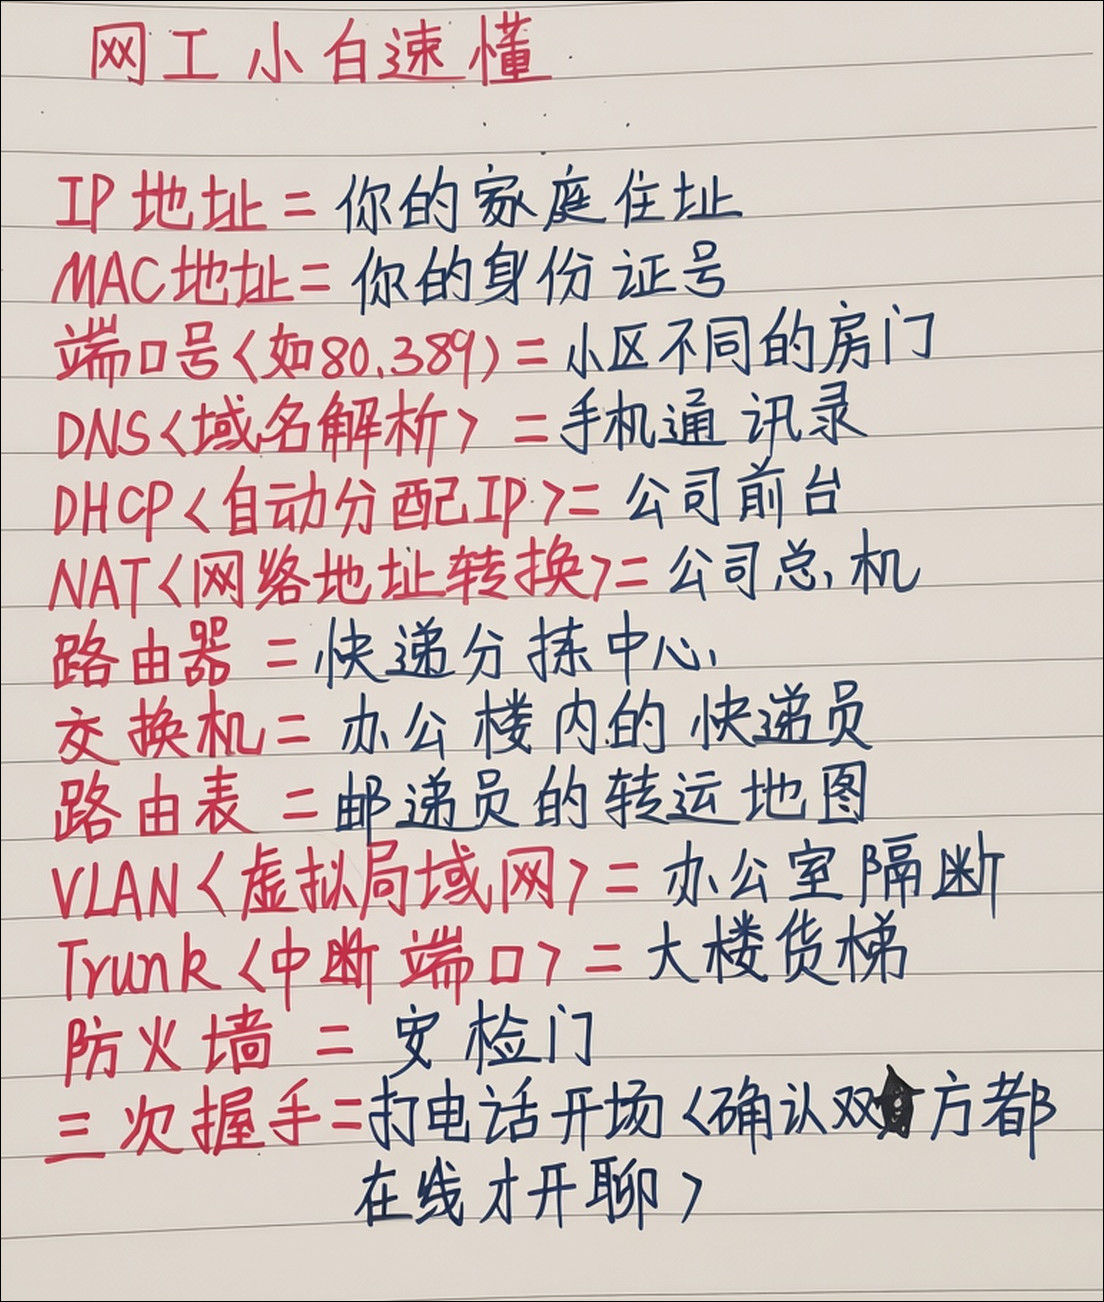 网工小白速懂
IP地址=你的家庭住址
MAC地址=你的身份证号
端口号<如80、389)=小区不同的房门
DNS<域名解析>=手机通讯录
DHCP<自动分配IP>=公司前台
NAT<网络地址转换>=公司总机
路由器=快递分拣中心
交换机=办公楼内的快递员
路由表=邮递员的转运地图
VLAN<虚拟局域网>=办公室隔断
Trunk<中断端口>=大楼货梯
防火墙=安检门
三次握手=打电话开场<确认双方都
在线才开聊>